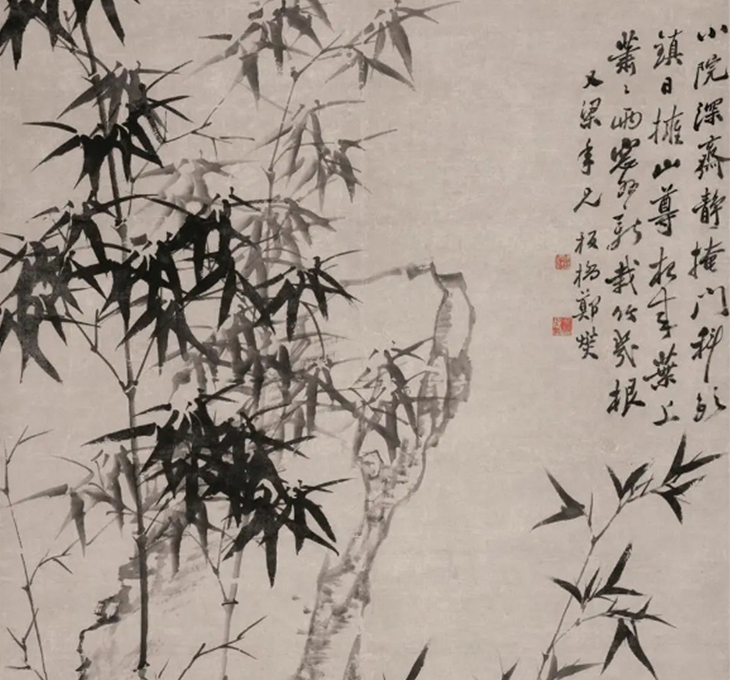 小院深齋靜掩門科頭
鎮日擁山尊秋來葉上
蕭〻雨窓外新栽竹幾根
又梁年兄 板橋鄭燮